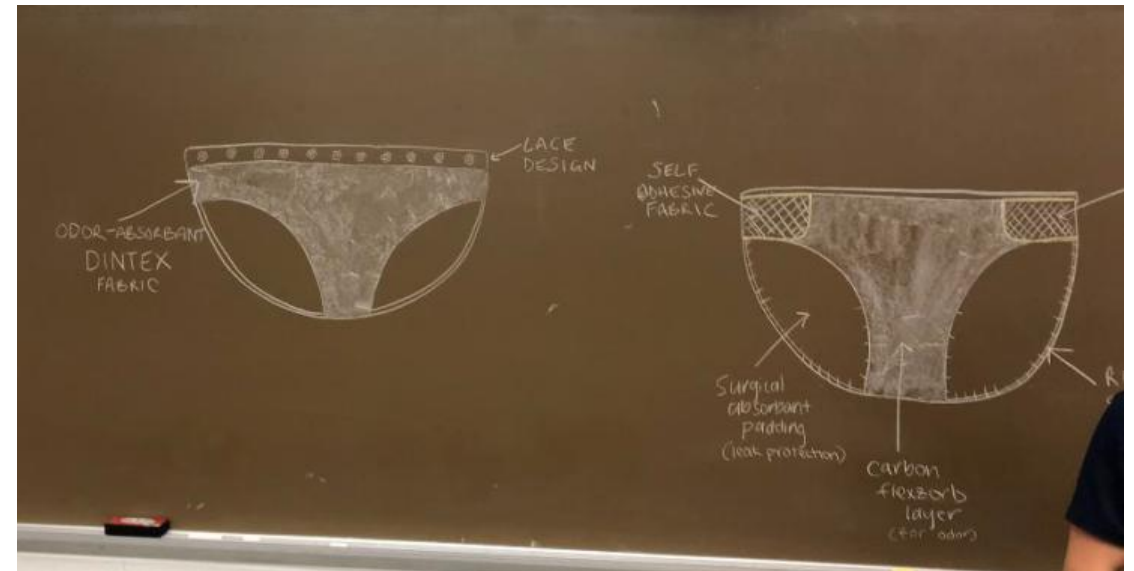 LACE
DESIGN
ODOR-ABSORBANT
DINTEX
FABRIC
SELF
ADHESIVE
FABRIC
Surgical
absorbant
padding
(leak protection)
carbon
flexzorb
layer
(for odor)